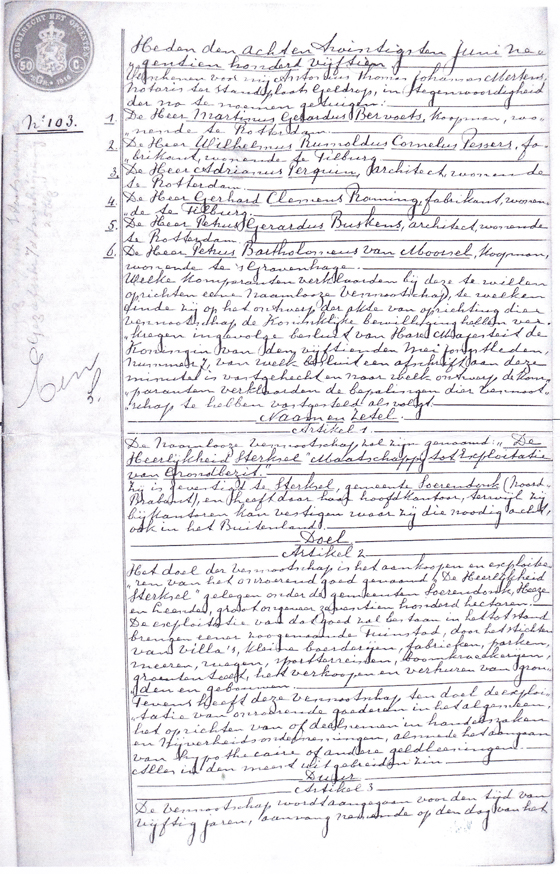 ZEGELRECHT MET OPCENTEN
50 C
No. 103.
Heden den achten twintigsten Juni ne-
gentien honderd vijftien
verschenen voor mij Antonius Thomas Johannes Mertens,
notaris ter standplaats Geldrop, in tegenwoordigheid
der na te noemen getuigen:
1. De Heer Martinus Gerardus Bervoets, koopman, wo-
nende te Rotterdam.
2. De Heer Wilhelmus Rumoldus Cornelus Pessers, fa-
brikant, wonende te Tilburg.
3. De Heer Adrianus Perquin, architect, wonende
te Rotterdam.
4. De Heer Gerhard Clemens Roming, fabrikant, wonen-
de te Tilburg.
5. De Heer Petrus Gerardus Buskens, architect, wonende
te Rotterdam.
6. De Heer Petrus Bartholomeus van Moorsel, koopman,
wonende te 's Gravenhage.
Welke komparanten verklaarden bij deze te willen
oprichten eene Naamlooze Vennootschap, te welken
einde zij op het ontwerp der akte van oprichting dier
vennootschap de Koninklijke bewilliging hebben ver-
kregen ingevolge besluit van Hare Majesteit de
Koningin van den vijftienden Mei jongstleden,
nummer 7, van welk besluit een afschrift aan deze
minute is vastgehecht en naar welk ontwerp de kom-
paranten verklaarden de bepalingen dier vennoot-
schap te hebben vastgesteld als volgt.
Naam en Zetel.
Artikel 1.
De Naamlooze Vennootschap zal zijn genaamd: "De
Heerlijkheid Sterksel" Maatschappij tot Exploitatie
van Grondbezit."
Zij is gevestigd te Sterksel, gemeente Soerendonk (Noord-
Brabant), en heeft daar haar hoofdkantoor, terwijl zij
bijkantoren kan vestigen waar zij die noodig acht,
ook in het Buitenland.
Doel
Artikel 2
Het doel der vennootschap is het aankoopen en exploitee-
ren van het onroerend goed genaamd "De Heerlijkheid
Sterksel" gelegen onder de gemeenten Soerendonk, Heeze
en Leende, groot ongeveer zeventien honderd hectaren.
De exploitatie van dat goed zal bestaan in het tot stand
brengen eener zoogenaamde Tuinstad, door het stichten
van villa's, kleine boerderijen, fabrieken, parken,
meeren, wegen, sportterreinen, boomkweekerijen,
groententeelt, het verkoopen en verhuren van gron-
den en gebouwen.
Tevens heeft deze vennootschap ten doel de exploi-
tatie van onroerende goederen in het algemeen,
het oprichten van of deelnemen in handelszaken
en Nijverheidsondernemingen, almede het aangaan
van hypothecaire of andere geldleeningen.
Alles in den meest uitgebreiden zin.
Duur
Artikel 3
De vennootschap wordt aangegaan voor den tijd van
vijftig jaren, aanvang nemende op den dag van het